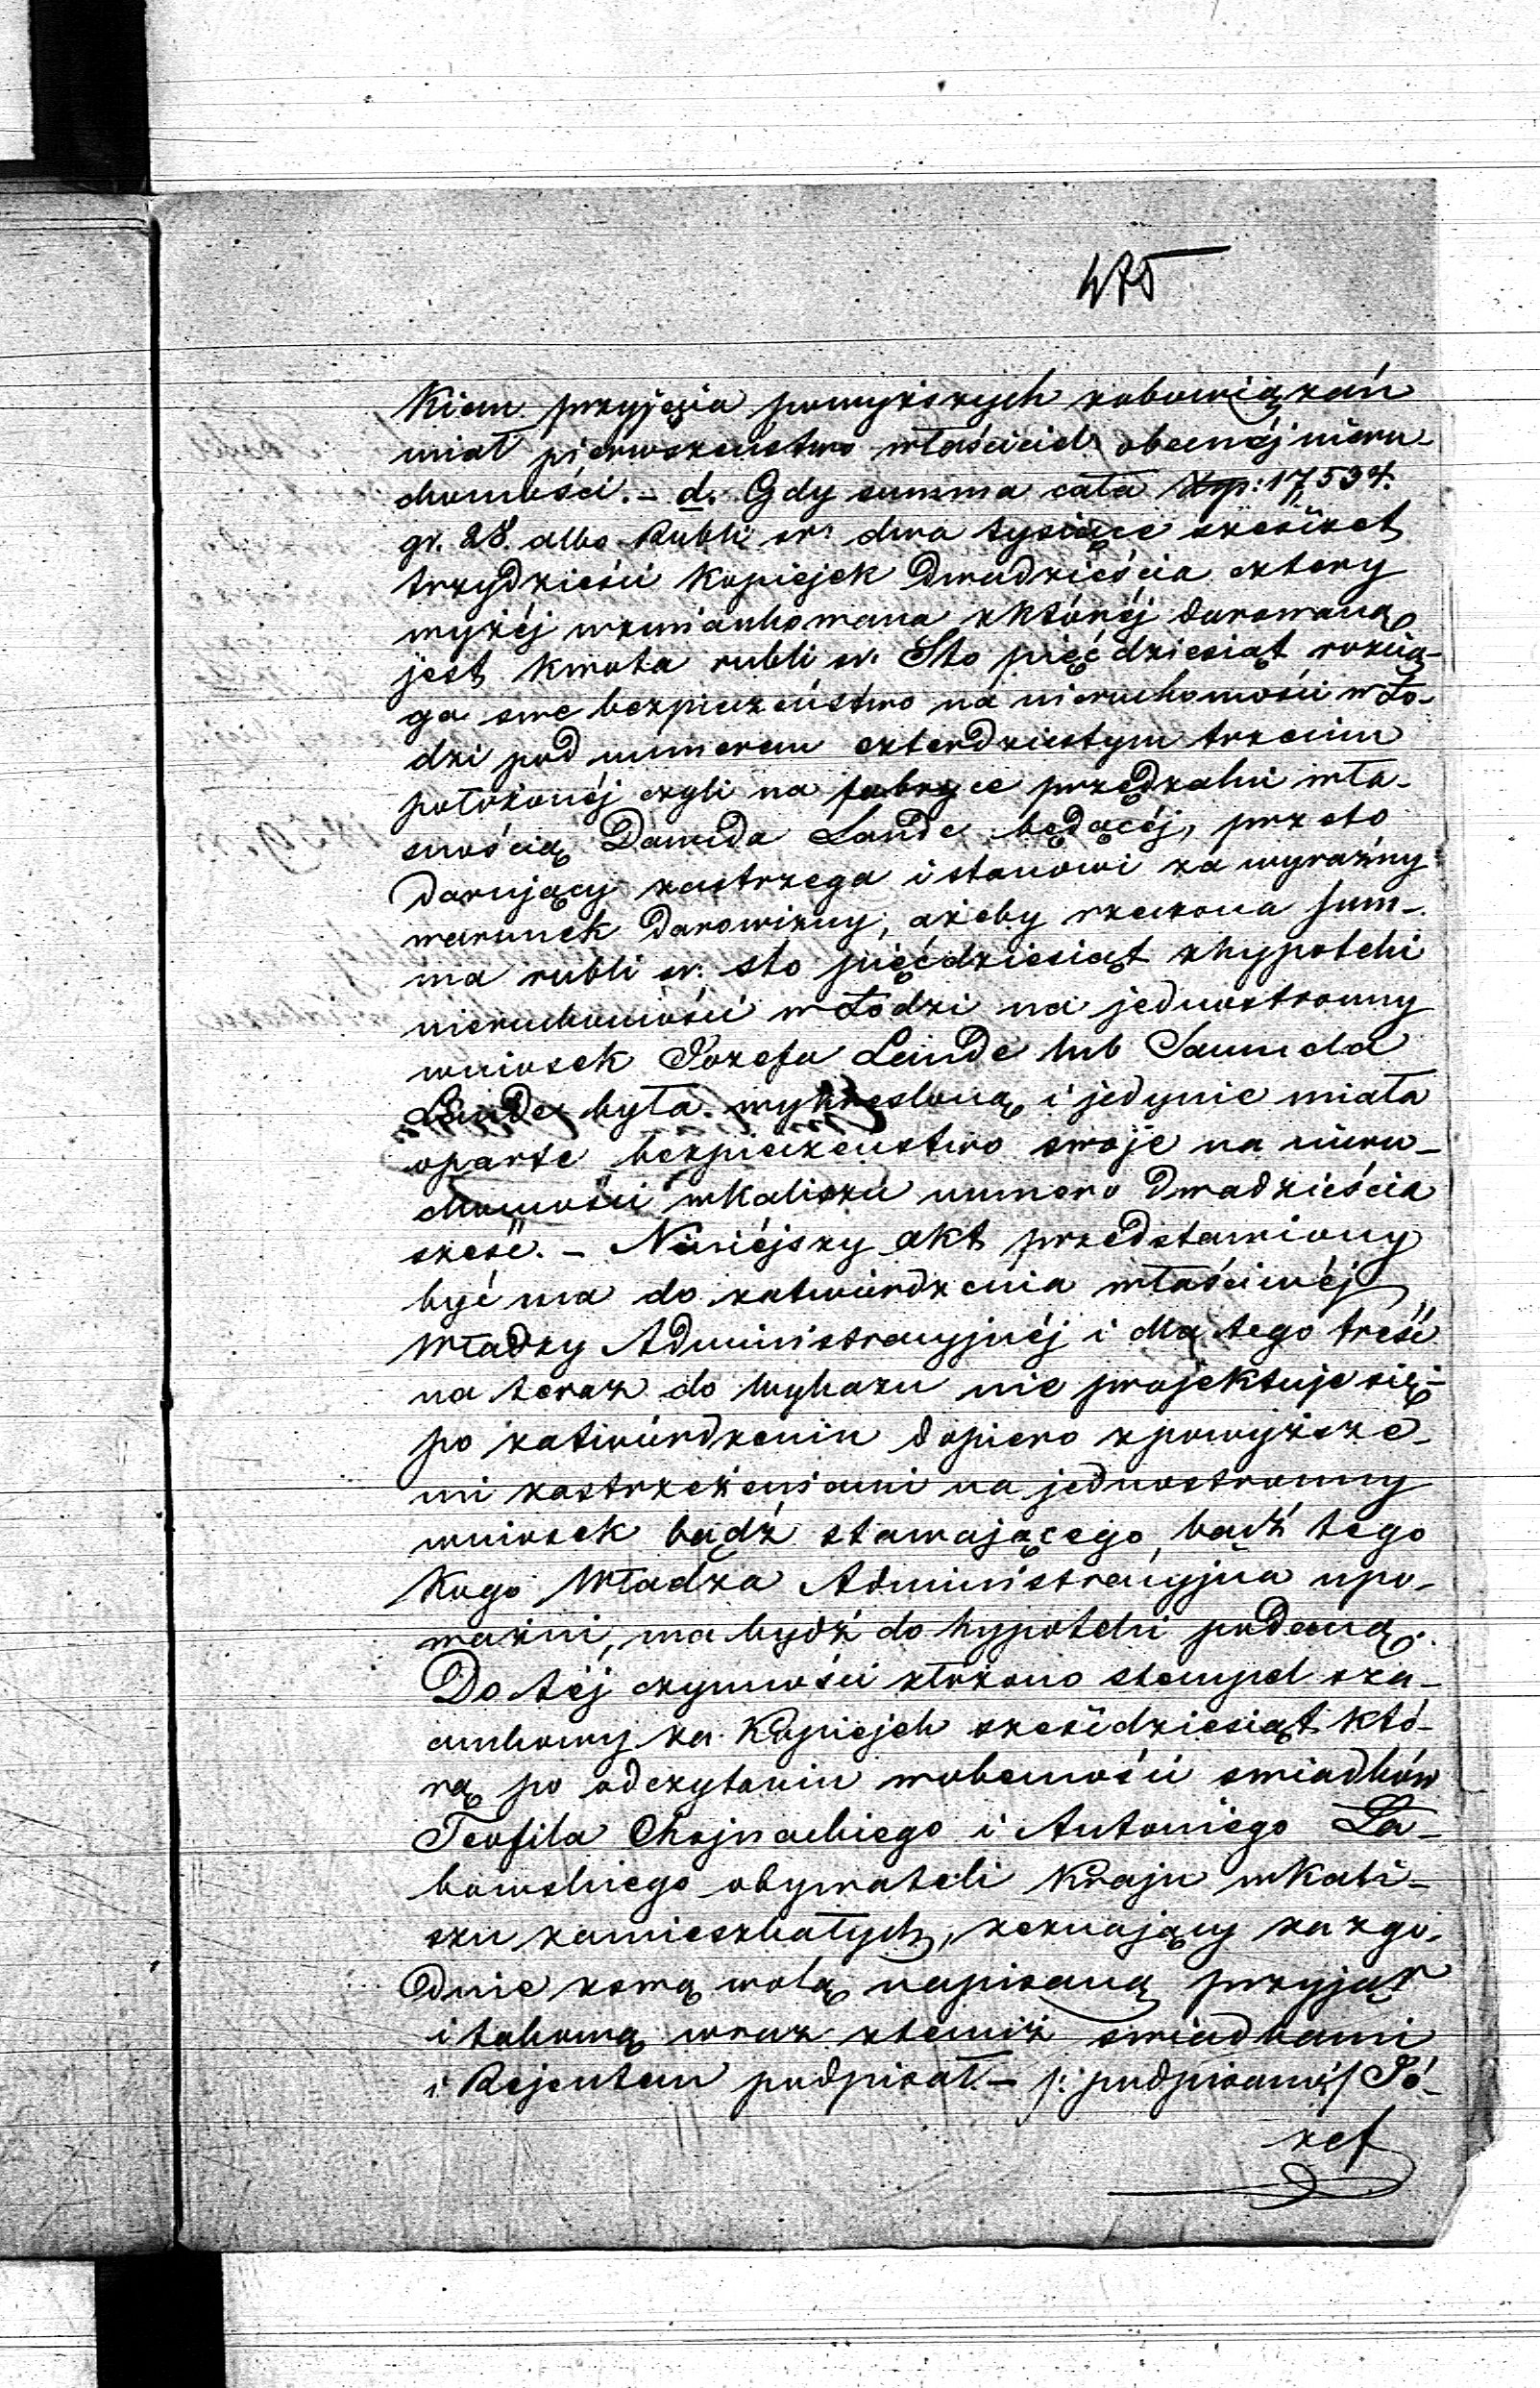 475
kiem przyjęcia powyższych zobowiązań
miał pierwszeństwo właściciel obecnéj nieru-
chomości. – d. Gdy summa cała złp: 17,534.
gr. 28. albo Rubli sr. dwa tysiące sześćset
trzydzieści kopiejek Dwadzieścia cztery
wyżéj wzmiankowana z którój darowaną
jest kwota rubli sr. Sto pięćdziesiąt rozcią-
ga swe bezpieczeństwo na nieruchomości w Ło-
dzi pod numerem czterdziestym trzecim
położonéj czyli na fabryce przędzalni wła-
snością Dawida Lande będącéj, przeto
Darujący zastrzega i stanowi za wyraźny
warunek Darowizny, ażeby rzeczona sum-
ma rubli sr. sto pięćdziesiąt z hypoteki
nieruchomości w Łodzi na jednostronny
wniosek Józefa Lande lub Samuela
Lande była wykreśloną i jedynie miała
oparte bezpieczeństwo swoje na nieru-
chomości w Kaliszu numero Dwadzieścia
sześć. – Niniéjszy akt przedstawiony
być ma do zatwierdzenia właściwéj
Władzy Administracyjnéj i dla tego treść
na teraz do wykazu nie projektuje się –
po zatwierdzeniu dopiero z powyższe-
mi zastrzeżeniami na jednostronny
wniosek bądź stawającego, bądź tego
kogo Władza Administracyjna upo-
ważni, ma bydź do hypoteki podaną.
Do téj czynności złożono stempel sza-
cunkowy za kopiejek sześćdziesiąt któ-
rą po odczytaniu w obecności swiadków
Teofila Chojnackiego i Antoniego La-
bowskiego obywateli Kraju w Kali-
szu zamieszkałych, zeznający za zgo-
dnie z swą wolą napisaną przyjął
i takową wraz z temiż swiadkami
i Rejentem podpisał. – /: podpisano:/ Jó-
zef